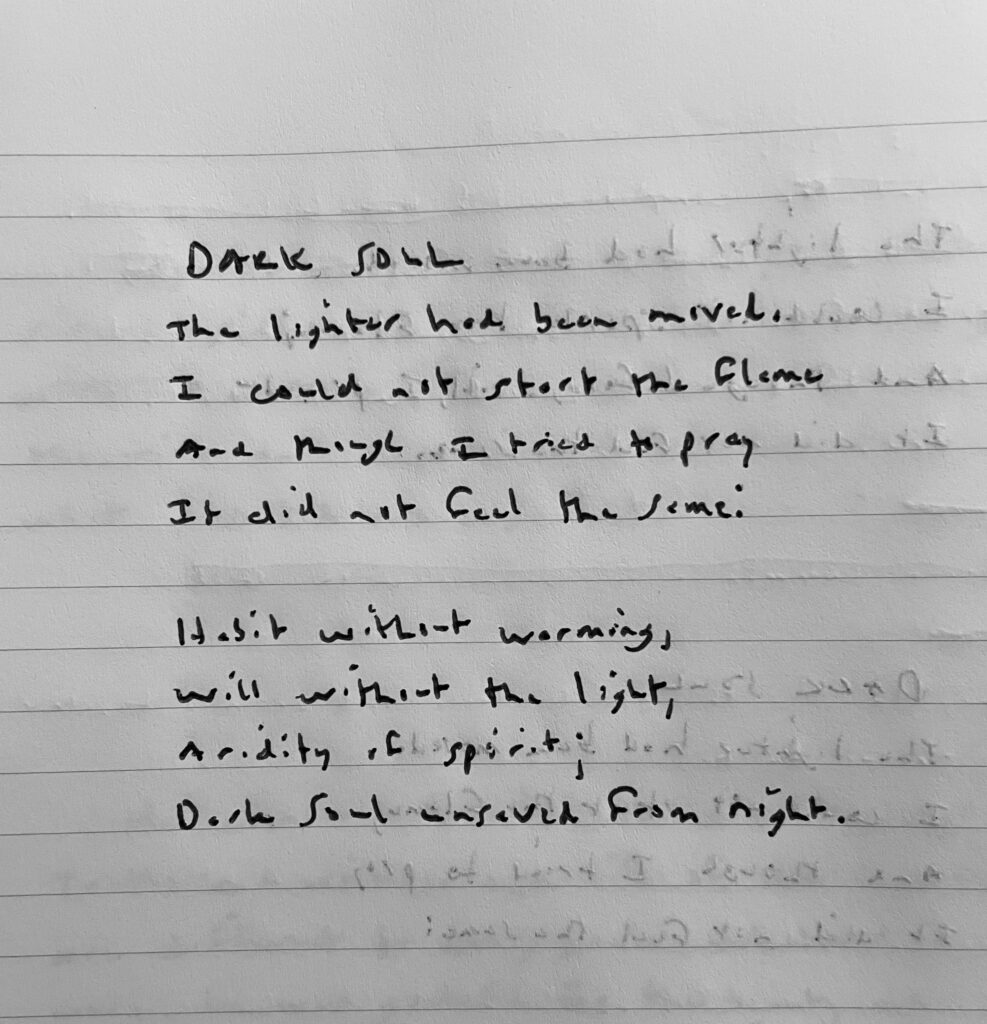 DARK SOUL
The lighter had been moved.
I could not start the flame
And though I tried to pray
It did not feel the same:
Habit without warming,
Will without the light,
Aridity of spirit;
Dark Soul unsaved from night.